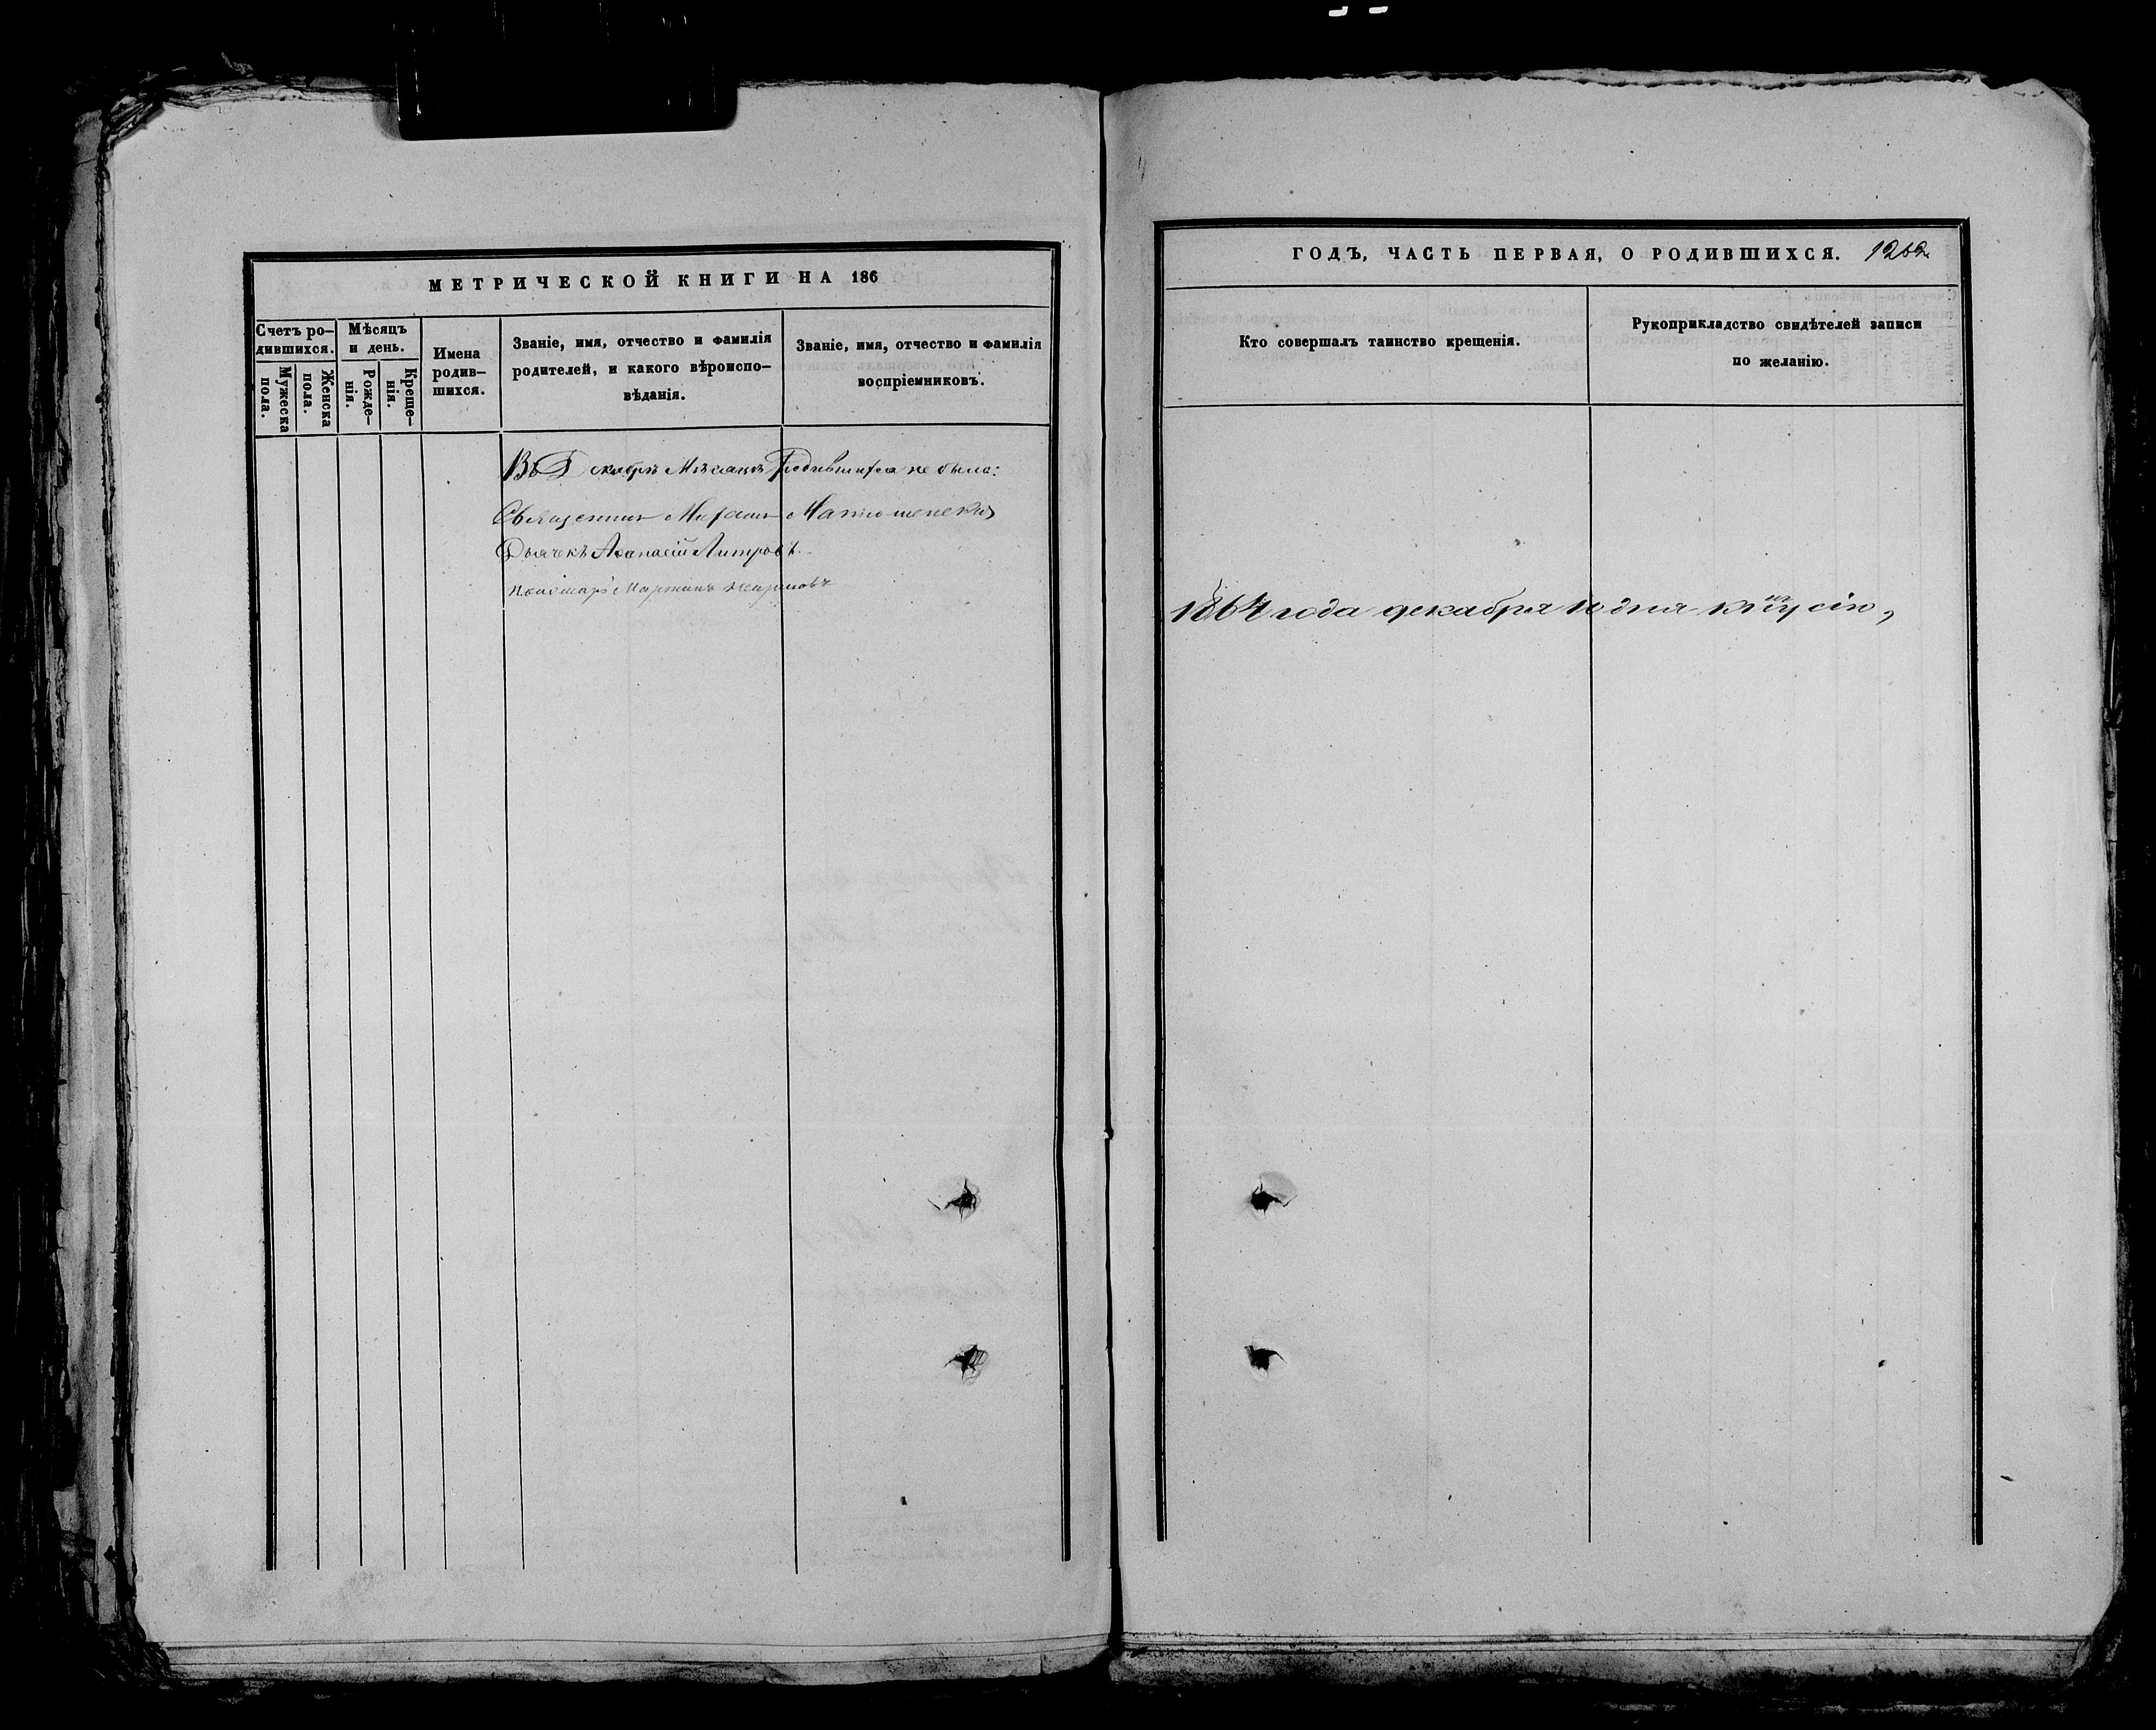 МЕТРИЧЕСКОЙ КНИГИ НА 186
Счетъ ро-
дившихся.
Мѣсяцъ
и день.
Мужеска
пола.
Женска
пола.
Рожде-
нія.
Креще-
нія.
Имена
родив-
шихся.
Званіе, имя, отчество и фамилія
родителей, и какого вѣроиспо-
вѣданія.
Званіе, имя, отчество и фамилія
воспріемниковъ.
Въ Декабрѣ Мѣсяцѣ Родившихся не было:
Священник
Дьячекъ Аѳанасій
Пономарь Мартинъ
ГОДЪ, ЧАСТЬ ПЕРВАЯ, О РОДИВШИХСЯ. 1262
Кто совершалъ таинство крещенія.
Рукоприкладство свидѣтелей записи
по желанію.
1864 года декабря 10 дня книгу сію,